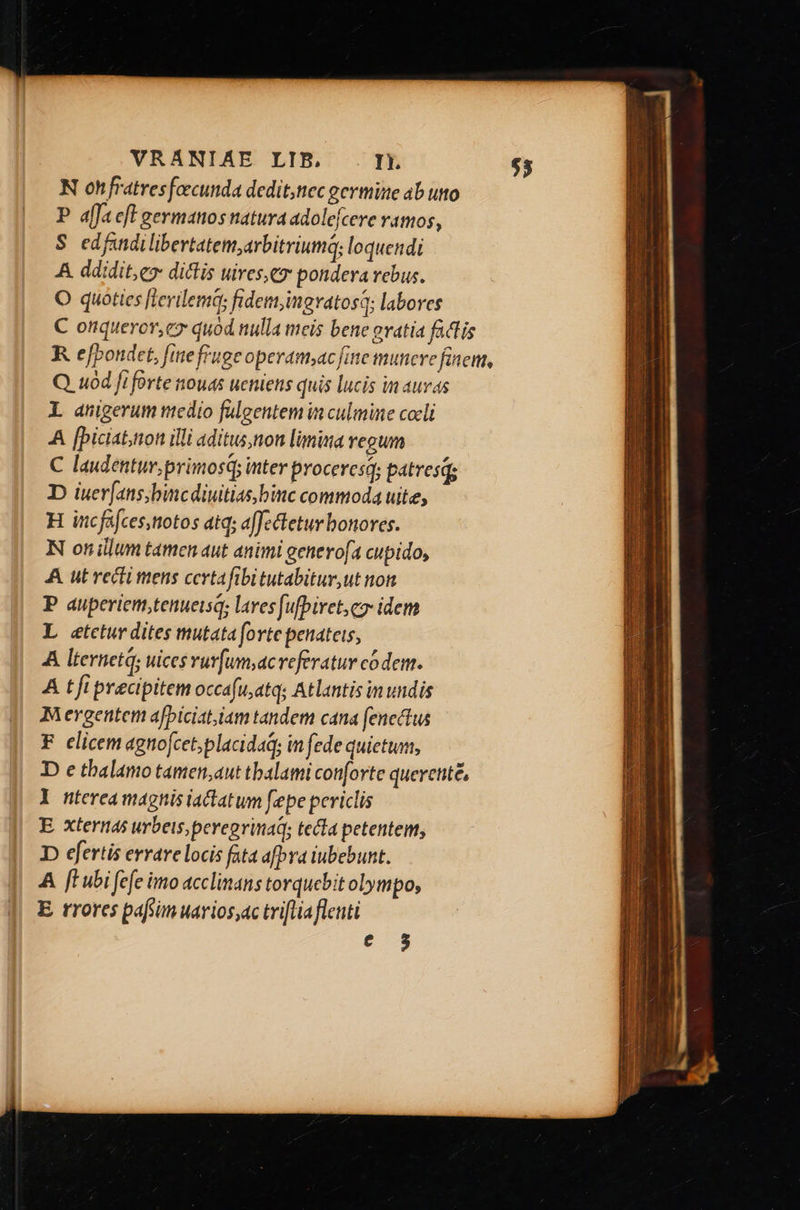 VRANIAE LIB. II. 35
N on fratres fœcunda dedit, nec germine ab uno
P assa est germanos natura adolescere ramos,
S ed fandi libertatem, arbitriumq; loquendi
A ddidit, & dictis uires, & pondera rebus.
O quòties sterilemq; fidem, ingratosq; labores
C onqueror, & quòd nulla meis bene gratia factis
R espondet, sine fruge operam, ac sine munere finem,
Q uòd si forte nouas ueniens quis lucis in auras
L anigerum medio fulgentem in culmine cœli
A spiciat, non illi aditus, non limina regum
C laudentur, primosq; inter proceresq; patresq;
D iuersans, hinc diuitias, hinc commoda uitæ,
H inc fasces, notos atq; assectetur honores.
N on illum tamen aut animi generosa cupido,
A ut recti mens certa sibi tutabitur, ut non
P auperiem, tenueisq; lares suspiret, & idem
L ætetur dites mutata sorte penateis,
A lternetq; uices rursum, ac referatur eòdem.
A t si præcipitem occasu, atq; Atlantis in undis
Mergentem aspiciat, iam tandem cana senectus
F elicem agnoscet, placidaq; in sede quietum,
D e thalamo tamen, aut thalami consorte querentē.
I nterea magnis iactatum sæpe periclis
E xternas urbeis, peregrinaq; tecta petentem,
D esertis errare locis fata aspra iubebunt.
A st ubi sese imo acclinans torquebit olympo,
E rrores passim uarios, ac tristia flenti
e 3